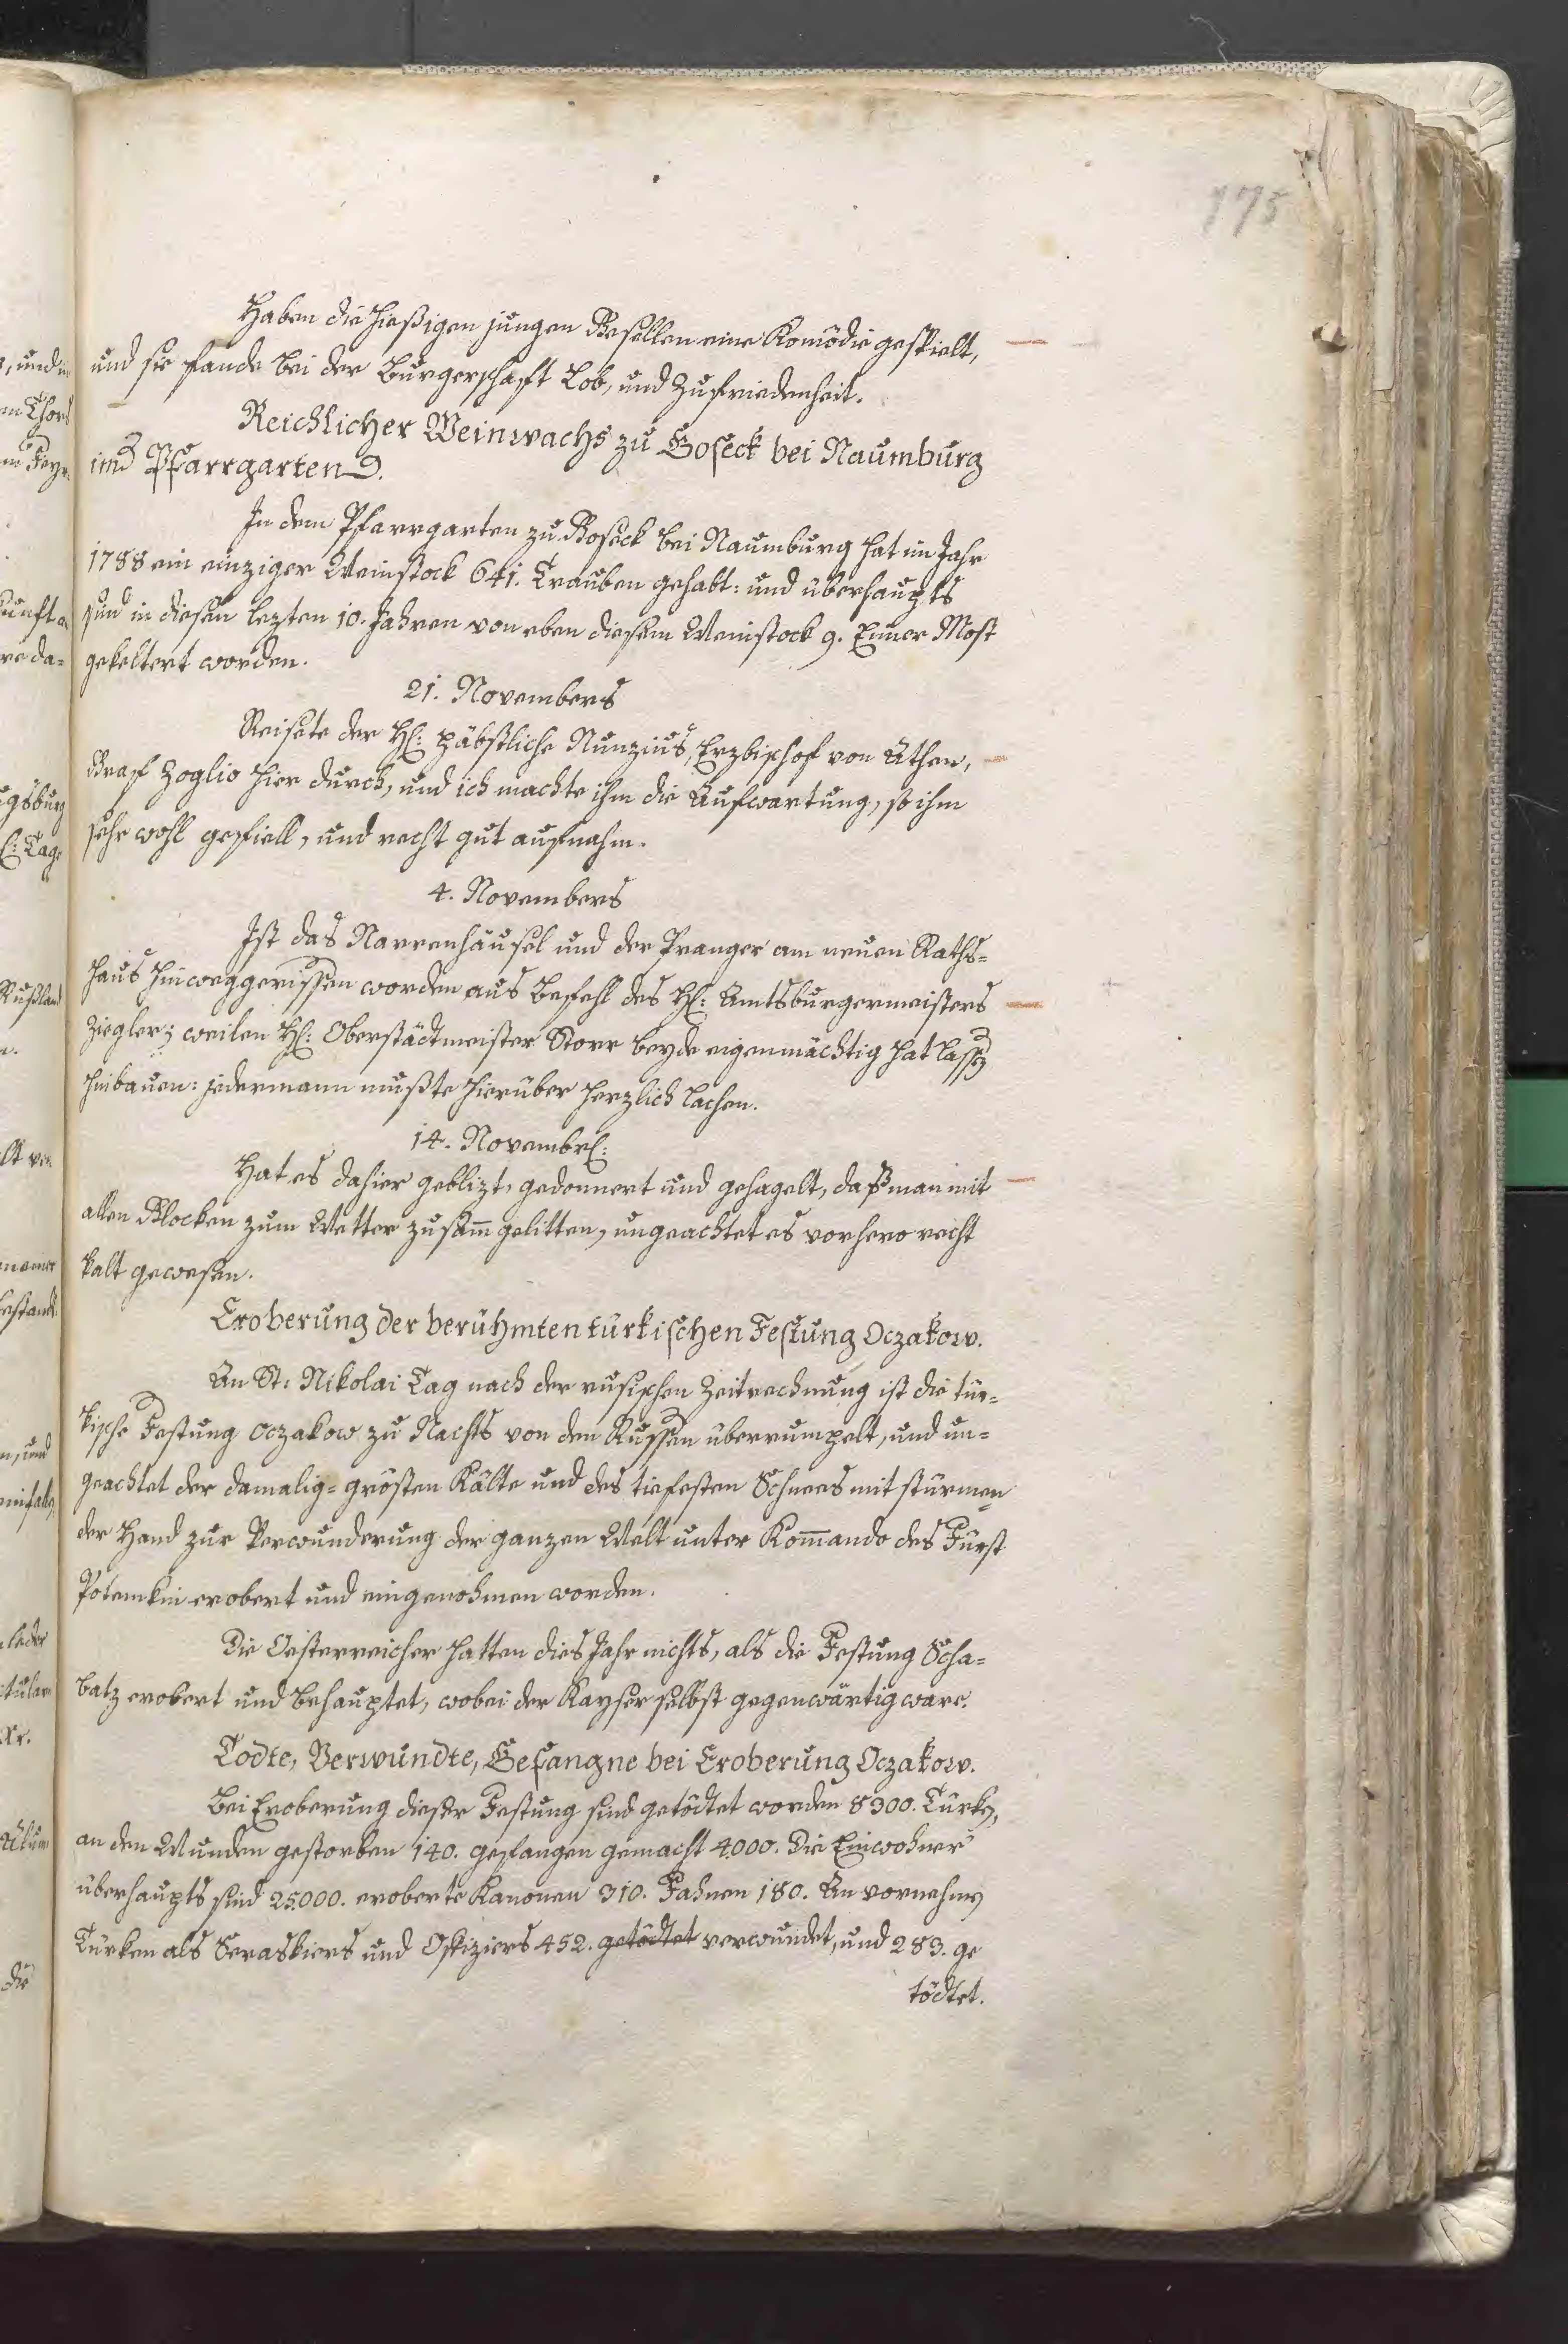 175
Haben die hießigen jungen Gesellen eine Komödie gespielt,
und sie fande bei der Burgerschaft Lob, und Zufriedenheit.
Reichlicher Weinwachs zu Goseck bei Naumburg
im Pfarrgarten.
In dem Pfarrgarten zu Goseck bei Naumburg hat im Jahr
1788 ein einziger Weinstock 641. Trauben gehabt: und überhaupts
sind in diesen lezten 10. Jahren von eben diesem Weinstock 9. Eimer Most
gekeltert worden.
21. Novembers
Reisete der H: päbstliche Nunzius, Erzbischof von Athen,
Graf Zoglio hier durch, und ich machte ihm die Aufwartung, so ihm
sehr wohl gefiell, und recht gut aufnahm.
4. Novembers
Ist das Narrenhäusel und der Pranger am neuen Raths-
haus hinweggerissen worden aus Befehl des H: Amtsburgermeisters
Ziegler; weilen H: Oberstädtmeister Storr beyde eigenmächtig hat lassen
hinbauen: jedermann mußte hierüber herzlich lachen.
14. Novembr:
Hat es dahier geblizt, gedonnert und gehagelt, daß man mit
allen Glocken zum Wetter zusamm gelitten, ungeachtet es vorhero recht
kalt gewesen.
Eroberung der berühmten türkischen Festung Oczakow.
An St: Nikolai Tag nach der rusischen Zeitrechnung ist die tür-
kische Festung Oczakow zu Nachts von den Russen überrumpelt, und un-
geachtet der damalig-grösten Kälte und des tiefesten Schnees mit stürmen-
der Hand zur Verwunderung der ganzen Welt unter Kommando des Fürst
Potemkin erobert und eingenohmen worden.
Die Oesterreicher hatten dies Jahr nichts, als die Festung Scha-
batz erobert und behauptet, wobei der Kayser selbst gegenwärtig ware.
Todte, Verwundte, Gefangne bei Eroberung Oczakow.
Bei Eroberung dieser Festung sind getödtet worden 8300. Türken,
an den Wunden gestorben 140. gefangen gemacht 4000. Die Einwohner
überhaupts sind 25000. eroberte Kanonen 310. Fahnen 180. An vornehmen
Türken als Seraskiers und Offiziers 452. getödtet verwundet, und 283. ge
tödtet.